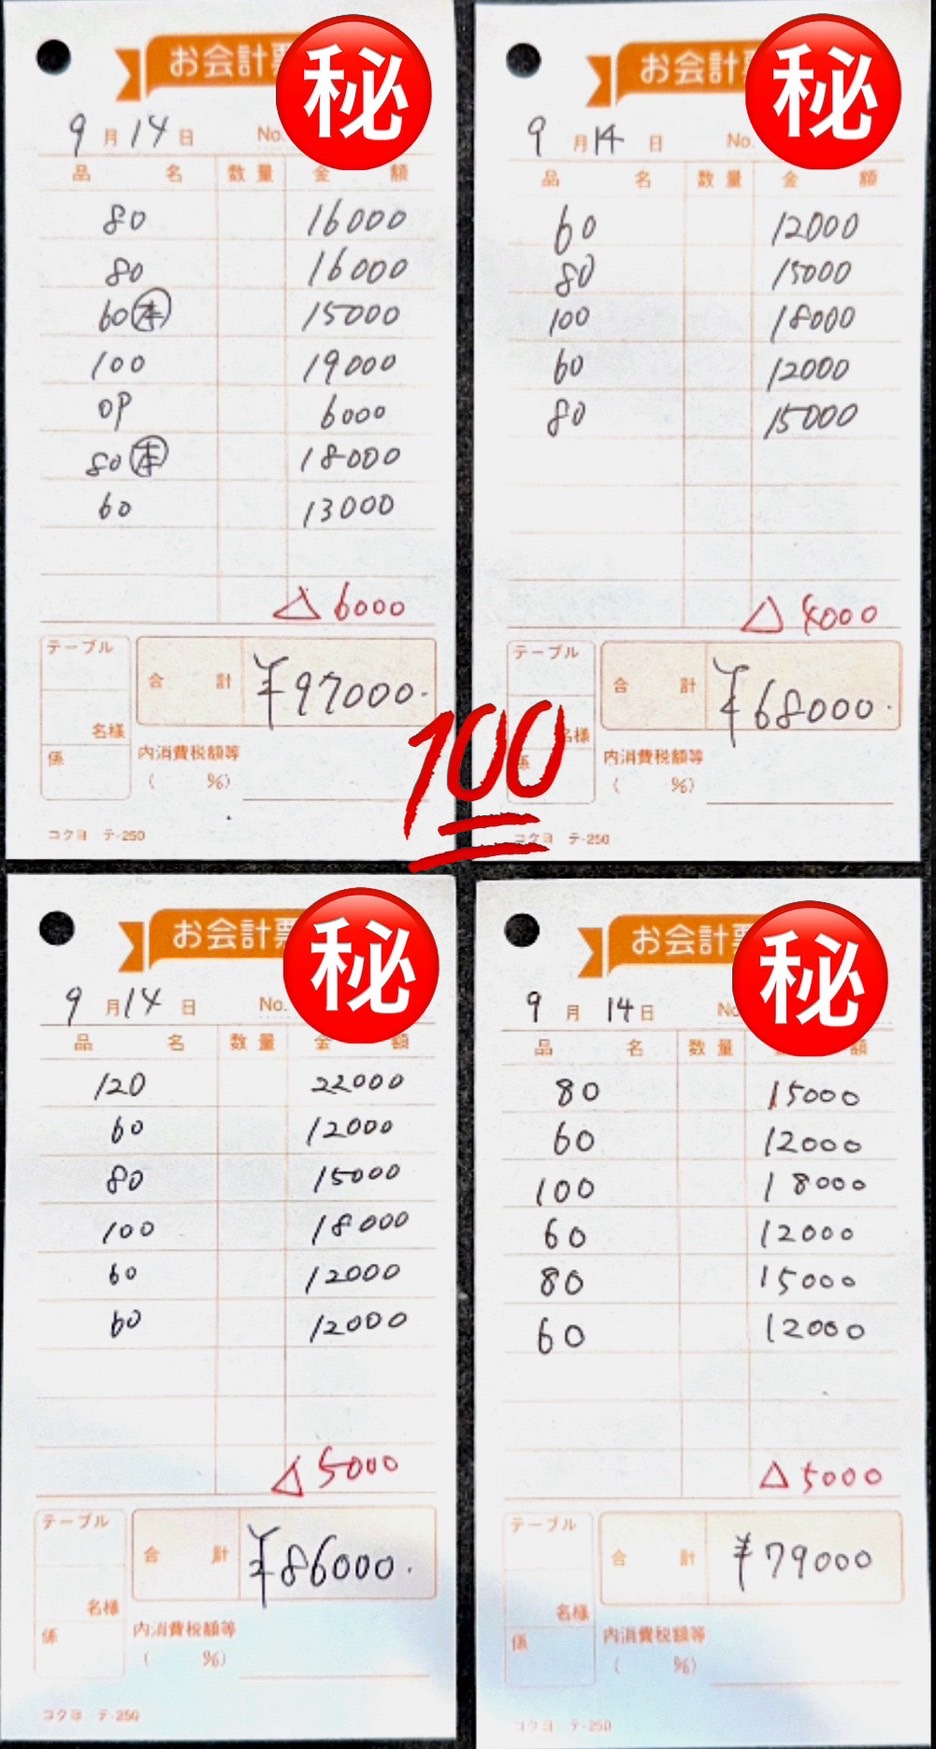 お会計票
㊙
9月14日 No.
品名 数量 金額
80 16000
80 16000
60㊍ 15000
100 19000
OP 6000
80㊍ 18000
60 13000
△6000
テーブル
合計 ¥97000.
名様
係
内消費税額等
( %)
コクヨ テ-250
お会計
㊙
9月14日 No.
品名 数量 金額
60 12000
80 15000
100 18000
60 12000
80 15000
△4000
テーブル
合計 ¥68000.
名様
係
内消費税額等
( %)
コクヨ テ-250
100
お会計票
㊙
9月14日 No.
品名 数量 金額
120 22000
60 12000
80 15000
100 18000
60 12000
60 12000
△5000
テーブル
合計 ¥86000.
名様
係
内消費税額等
( %)
コクヨ テ-250
お会計票
㊙
9月14日 No
品名 数量 金額
80 15000
60 12000
100 18000
60 12000
80 15000
60 12000
△5000
テーブル
合計 ¥79000
名様
係
内消費税額等
( %)
コクヨ テ-250